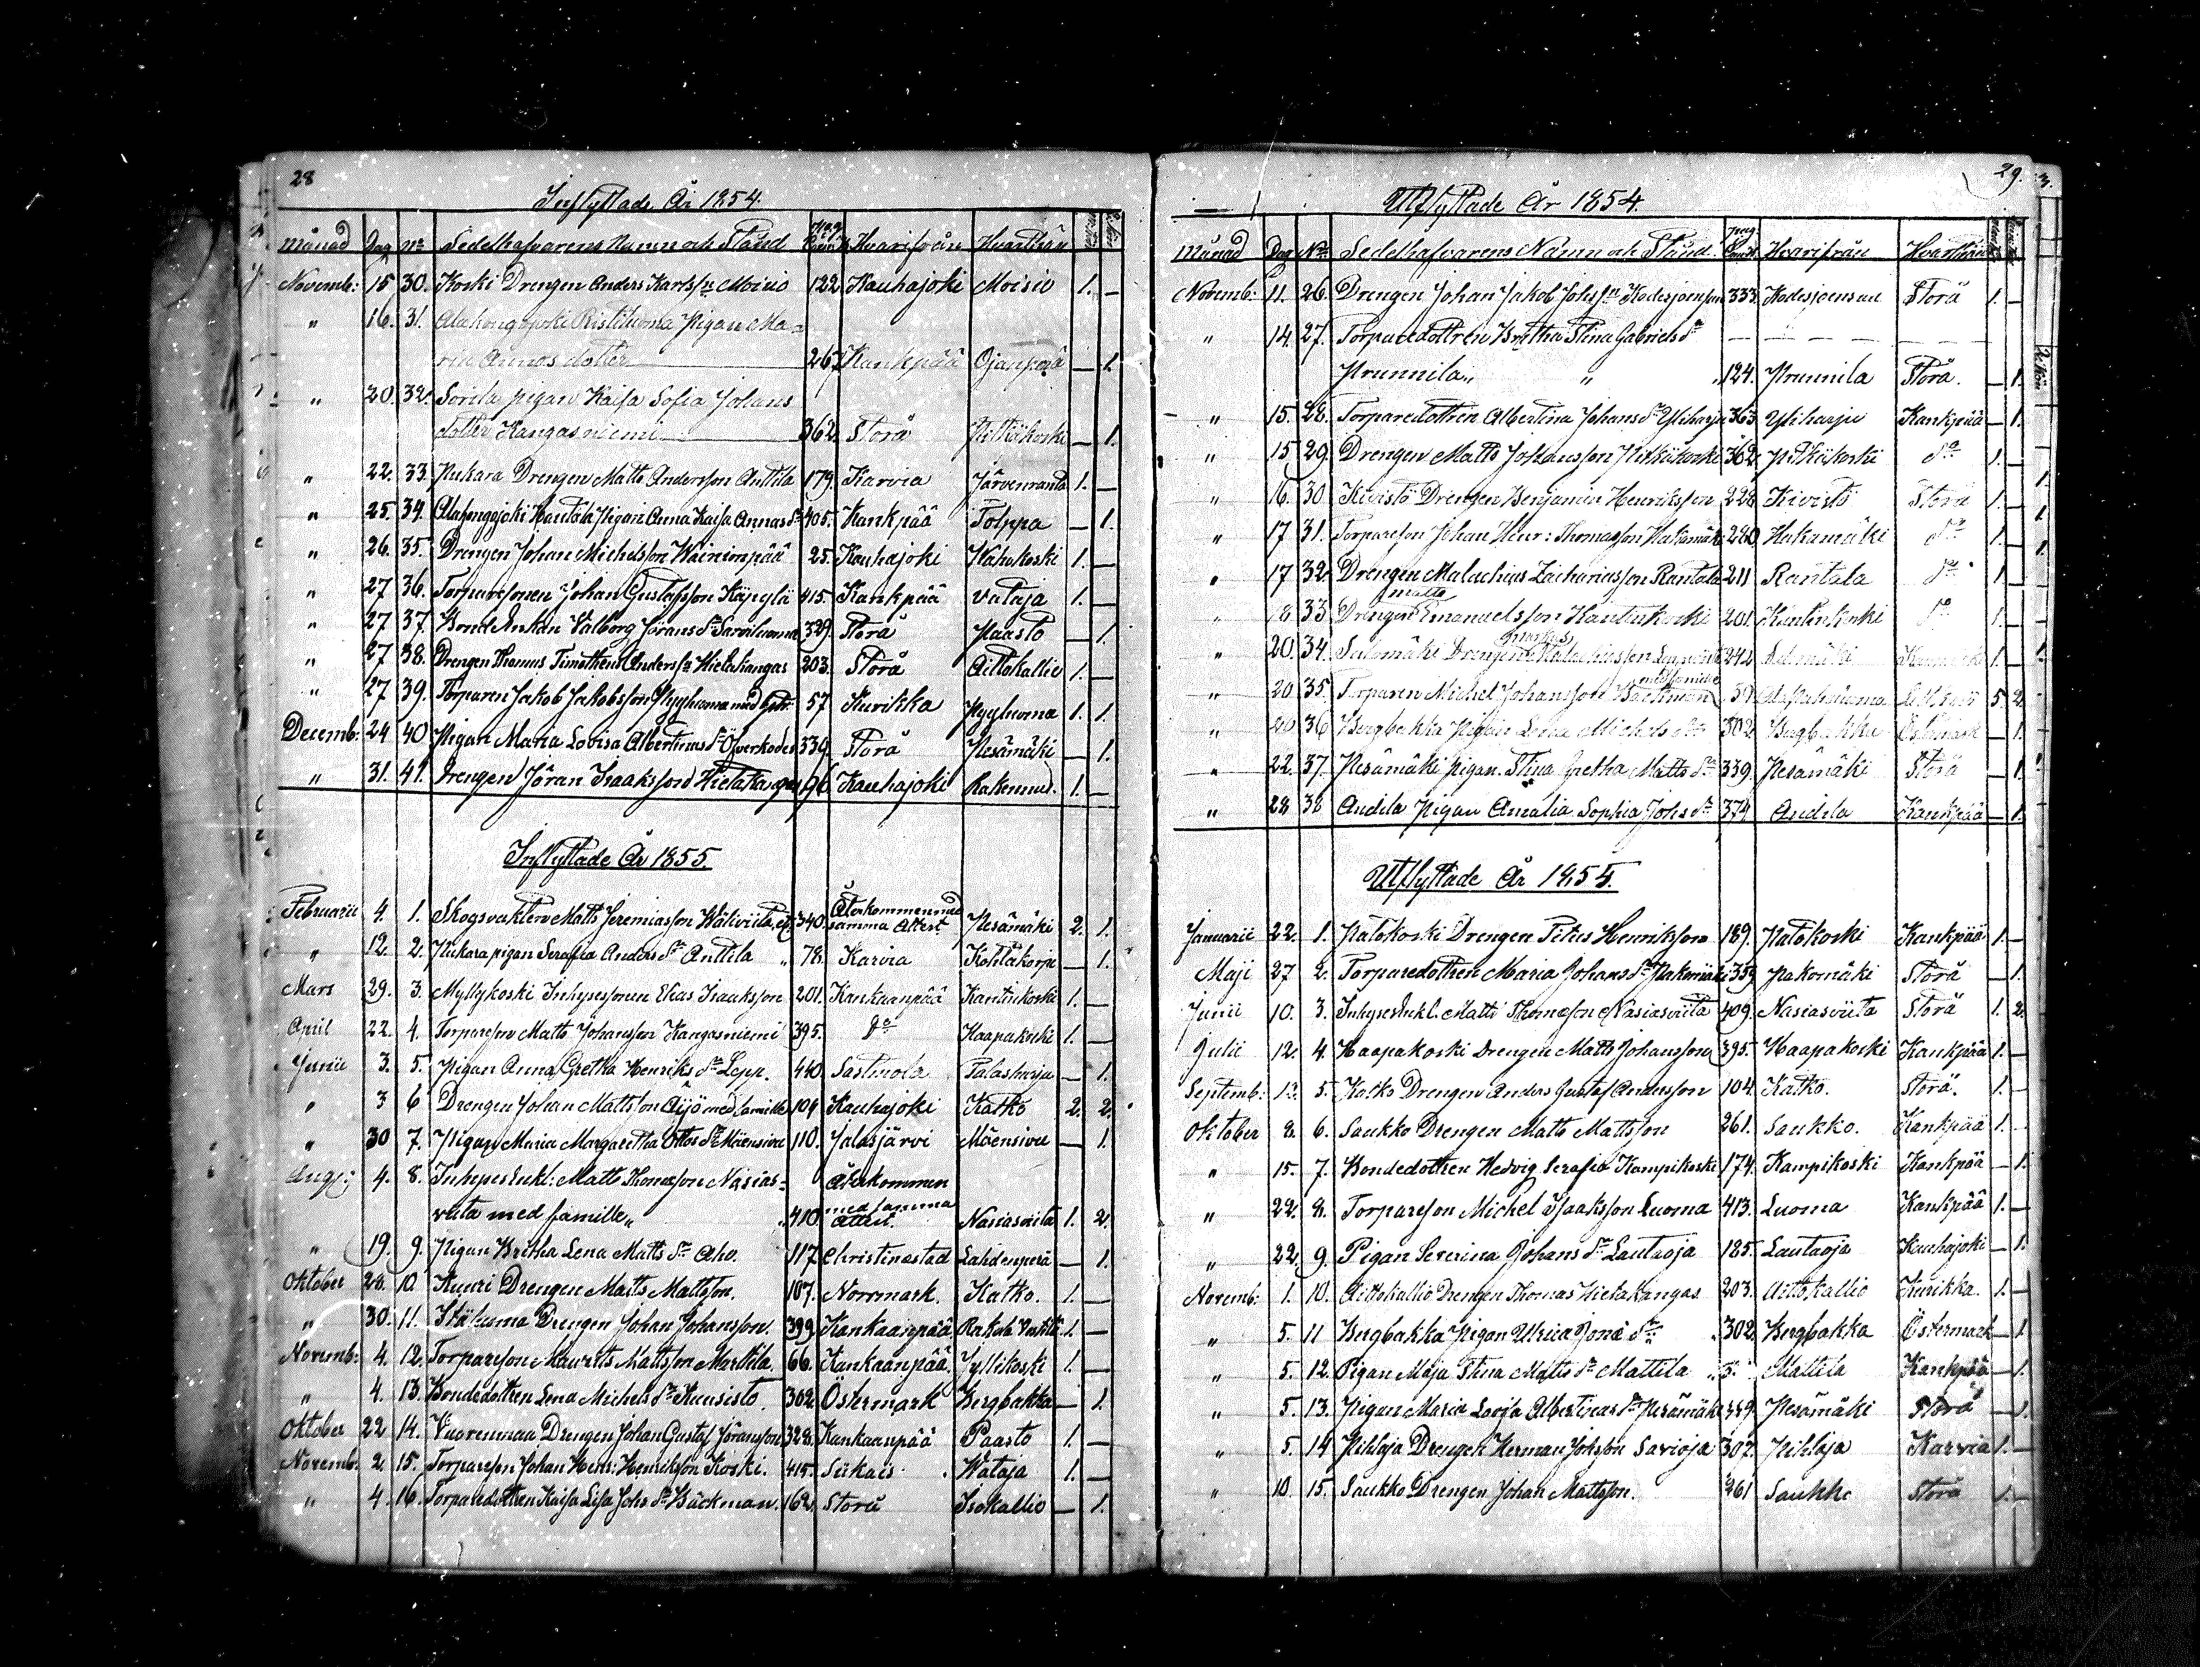 28
Inflyttade År 1854.
Månad Dag No Sedelhafvarens Namn och Stånd Pag. Hvarifrån Hvarthän
Novemb: 15 30. Koski Drengen Anders Karlsson Moisio 122 Kauhajoki Moisio 1. —
" 16. 31. Alahongojoki Ristiluoma Pigan Ma-
ria Annas dotter 267 Kankpää Ojanperä — 1.
" 20. 32. Sorila pigan Kaisa Sofia Johans
dotter Kangasniemi 362. Storå Pitkäkoski — 1.
" 22. 33. Pukara Drengen Matts Andersson Anttila 179. Karvia Järvenranta 1. —
" 25. 34. Alahongojoki Hautola Pigan Anna Kaisa Annas dr 405. Kankpää Tolppa — 1.
" 26. 35. Drengen Johan Michelsson Wäinionpää 25. Kauhajoki 1. —
" 27 36. Torparesonen Johan Gustafsson Käpylä 415. Kankpää Vataja 1. —
" 27 37. Bond Enkan Valborg Jörans dr Sarviluoma 329. Storå Paasto — 1.
" 27 38. Drengen Thomas Timotheus Andersson Hietakangas 203. Storå Aittokallio 1. —
" 27 39. Torparen Jakob Jakobsson Pyyluoma med hstr. 57 Kurikka Pyyluoma 1. 1.
Decemb: 24 40 Pigan Maria Lovisa Albertinas dr Öfverkodes 339. Storå Pesämäki — 1.
" 31. 41. Drengen Jöran Isaaksson Hietakangas 96 Kauhajoki 1. —
Inflyttade År 1855.
Februarii 4. 1. Skogsvaktern Matts Jeremiasson 340. Återkommen med samma Attest Pesämäki 2. 1.
" 12. 2. Pukara pigan Serafia Anders dr Anttila " 78. Karvia — 1.
Mars 29. 3. Myllykoski Inhysessonen Elias Isaaksson 201. Kankaanpää Kantinkoski 1. —
April 22. 4. Torpareson Matts Johansson Kangasniemi 395. do Haapakoski 1. —
Junii 3. 5. Pigan Anna Gretha Henriks dr Lepp. 440. Sastmola Palasharju — 1.
" 3 6 Drengen Johan Mattsson Äijö med familie 104 Kauhajoki Katko 2. 2.
" 30 7. Pigan Maria Margaretha Ottos dr Mäensivu 110. Jalasjärvi Mäensivu — 1.
Aug: 4. 8. Inhyses Enkl: Matts Thomasson Nasias-
viita med familie " 410. Återkommen med samma Attest. Nasiasviita 1. 2.
" 19. 9. Pigan Britha Lena Matts dr Aho. 117 Christinestad Lahdenperä — 1.
Oktober 20. 10. Kuuri Drengen Matts Mattsson. 107. Norrmark. Katko. 1. —
" 30. 11. Drengen Johan Johansson. 399. Kankaanpää 1. —
Novemb: 4. 12. Torpareson Mauritz Mattsson Marttila. 66. Kankaanpää. Jyllikoski 1. —
" 4. 13. Bondedottren Lena Michels dr Kuusisto. 302. Östermark Bergbakka — 1.
Oktober 22 14. Vuorenmaa Drengen Johan Gustaf Jöransson 328. Kankaanpää Paasto 1. —
Novemb. 2. 15. Torpareson Johan Henr: Henriksson Koski. 415. Siikais Wataja 1. —
" 4. 16. Torparedottren Kaisa Lisa Johs dr Bäckman. 162. Storå Isokallio — 1.
29.
Utflyttade År 1854.
Månad Dag No Sedelhafvarens Namn och Stånd Pag. Hvarifrån Hvarthän
Novemb: 11. 26. Drengen Johan Jakob Johsson Kodesjoensuu 333. Kodesjoensuu Storå 1. —
" 14. 27. Torparedottren Britha Stina Gabriels dr
Prunnila " " 124. Prunnila Storå. — 1.
" 15. 28. Torparedottren Albertina Johans dr Yliharju 363 Yliharju Kankpää — 1.
" 15 29. Drengen Matts Johansson Pitkäkoski 362. Pitkäkoski do 1. —
" 16. 30 Kivistö Drengen Benjamin Henriksson 228. Kivistö Storå 1. —
" 17 31. Torpareson Johan Henr: Thomasson Hakamäki 280. Hakamäki do 1. —
" 17 32. Drengen Malachias Zachariasson Rantala 211 Rantala do 1. —
" 18 33 Drengen Matts Emanuelsson Kantinkoski 201. Kantinkoski do 1. —
" 20. 34. Salomäki Drengen 242 Salomäki 1. —
" 20 35. Torparen Michel Johansson Bäckman med familie 5 2.
" 20 36 Bergbakka Pigan Lena Michels dr 302 Bergbakka Östmark — 1.
" 22. 37. Pesämäki pigan Stina Gretha Matts dr 339. Pesämäki Storå — 1.
" 28 38 Andila Pigan Amalia Sophia Johs dr 374 Andila Kankpää — 1.
Utflyttade År 1855.
Januarii 22. 1. Patokoski Drengen Petter Henriksson 189. Patokoski Kankpää 1. —
Maji 27 2. Torparedottren Maria Johans dr Pakomäki 359 Pakomäki Storå — 1.
Junii 10. 3. Inhyses Enkl. Matts Thomasson Nasiasviita 409. Nasiasviita Storå 1. 2.
Julii 12. 4. Haapakoski Drengen Matts Johansson 395. Haapakoski Kankpää 1. —
Septemb: 13. 5. Katko Drengen Anders Gustaf Andersson 104. Katko. Storå. 1. —
Oktober 8. 6. Saukko Drengen Matts Mattsson 261. Saukko. Kankpää 1. —
" 15. 7. Bondedottren Hedvig Serafia Kampikoski 174. Kampikoski Kankpää — 1.
" 22. 8. Torpareson Michel Isaaksson Luoma 413. Luoma Kankpää 1. —
" 22. 9. Pigan Severina Johans dr Lautaoja 185. Lautaoja Kauhajoki — 1.
Novemb: 1. 10. Aittokallio Drengen Thomas Hietakangas 203. Aittokallio Kurikka. 1. —
" 5. 11 Bergbakka Pigan Ulrica Jonä dr 302. Bergbakka Östermark — 1.
" 5. 12. Pigan Maja Stina Matts dr Mattila 3. Mattila Kankpää — 1.
" 5. 13. Pigan Maria Lovisa Albertinas dr Pesämäki 339. Pesämäki Storå — 1.
" 5. 14 Pihlaja Drengen Herman Johsson Savioja 307. Pihlaja Karvia 1. —
" 10. 15. Saukko Drengen Johan Mattsson. 261 Saukko Storå 1. —